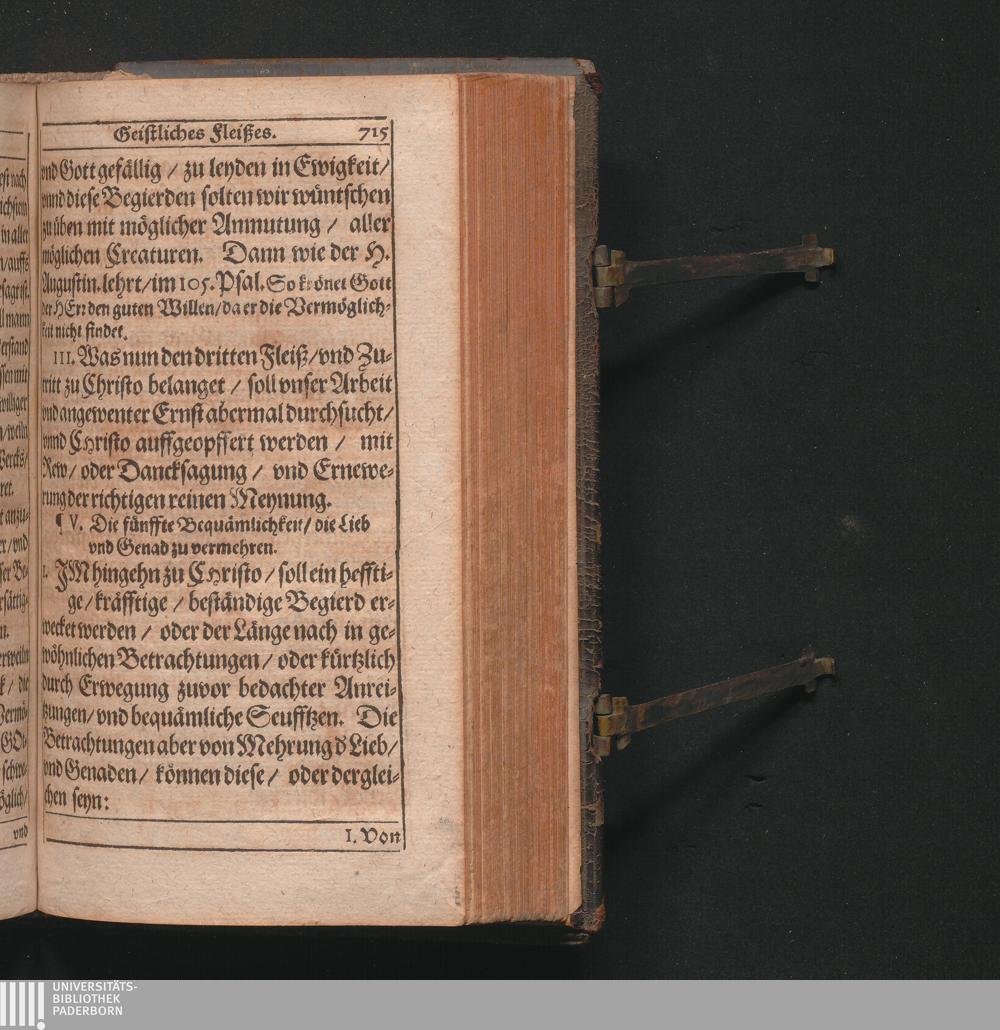 Geistliches Fleißes. 715
vnd Gott gefällig / zu leyden in Ewigkeit/
vnnd diese Begierden solten wir wüntschen
zu üben mit möglicher Anmutung / aller
möglichen Creaturen. Dann wie der H.
Augustin. lehrt/im 105. Psal. So krönet Gott
der HErr den guten Willen/da er die Vermöglich-
keit nicht findet.
III. Was nun den dritten Fleiß/vnd Zu-
tritt zu Christo belanget / soll vnser Arbeit
vnd angewenter Ernst abermal durchsucht/
vnnd CHristo auffgeopffert werden / mit
Rew/ oder Dancksagung / vnd Ernewe-
rung der richtigen reinen Meynung.
¶ V. Die fünffte Bequämlichkeit/ die Lieb
vnd Genad zu vermehren.
I. IM hingehn zu CHristo / soll ein heffti-
ge / kräfftige / beständige Begierd er-
wecket werden / oder der Länge nach in ge-
wöhnlichen Betrachtungen / oder kürtzlich
durch Erwegung zuvor bedachter Anrei-
tzungen/ vnd bequämliche Seufftzen. Die
Betrachtungen aber von Mehrung d̕ Lieb/
vnd Genaden / können diese / oder derglei-
chen seyn:
I. Von
UNIVERSITÄTS-
BIBLIOTHEK
PADERBORN